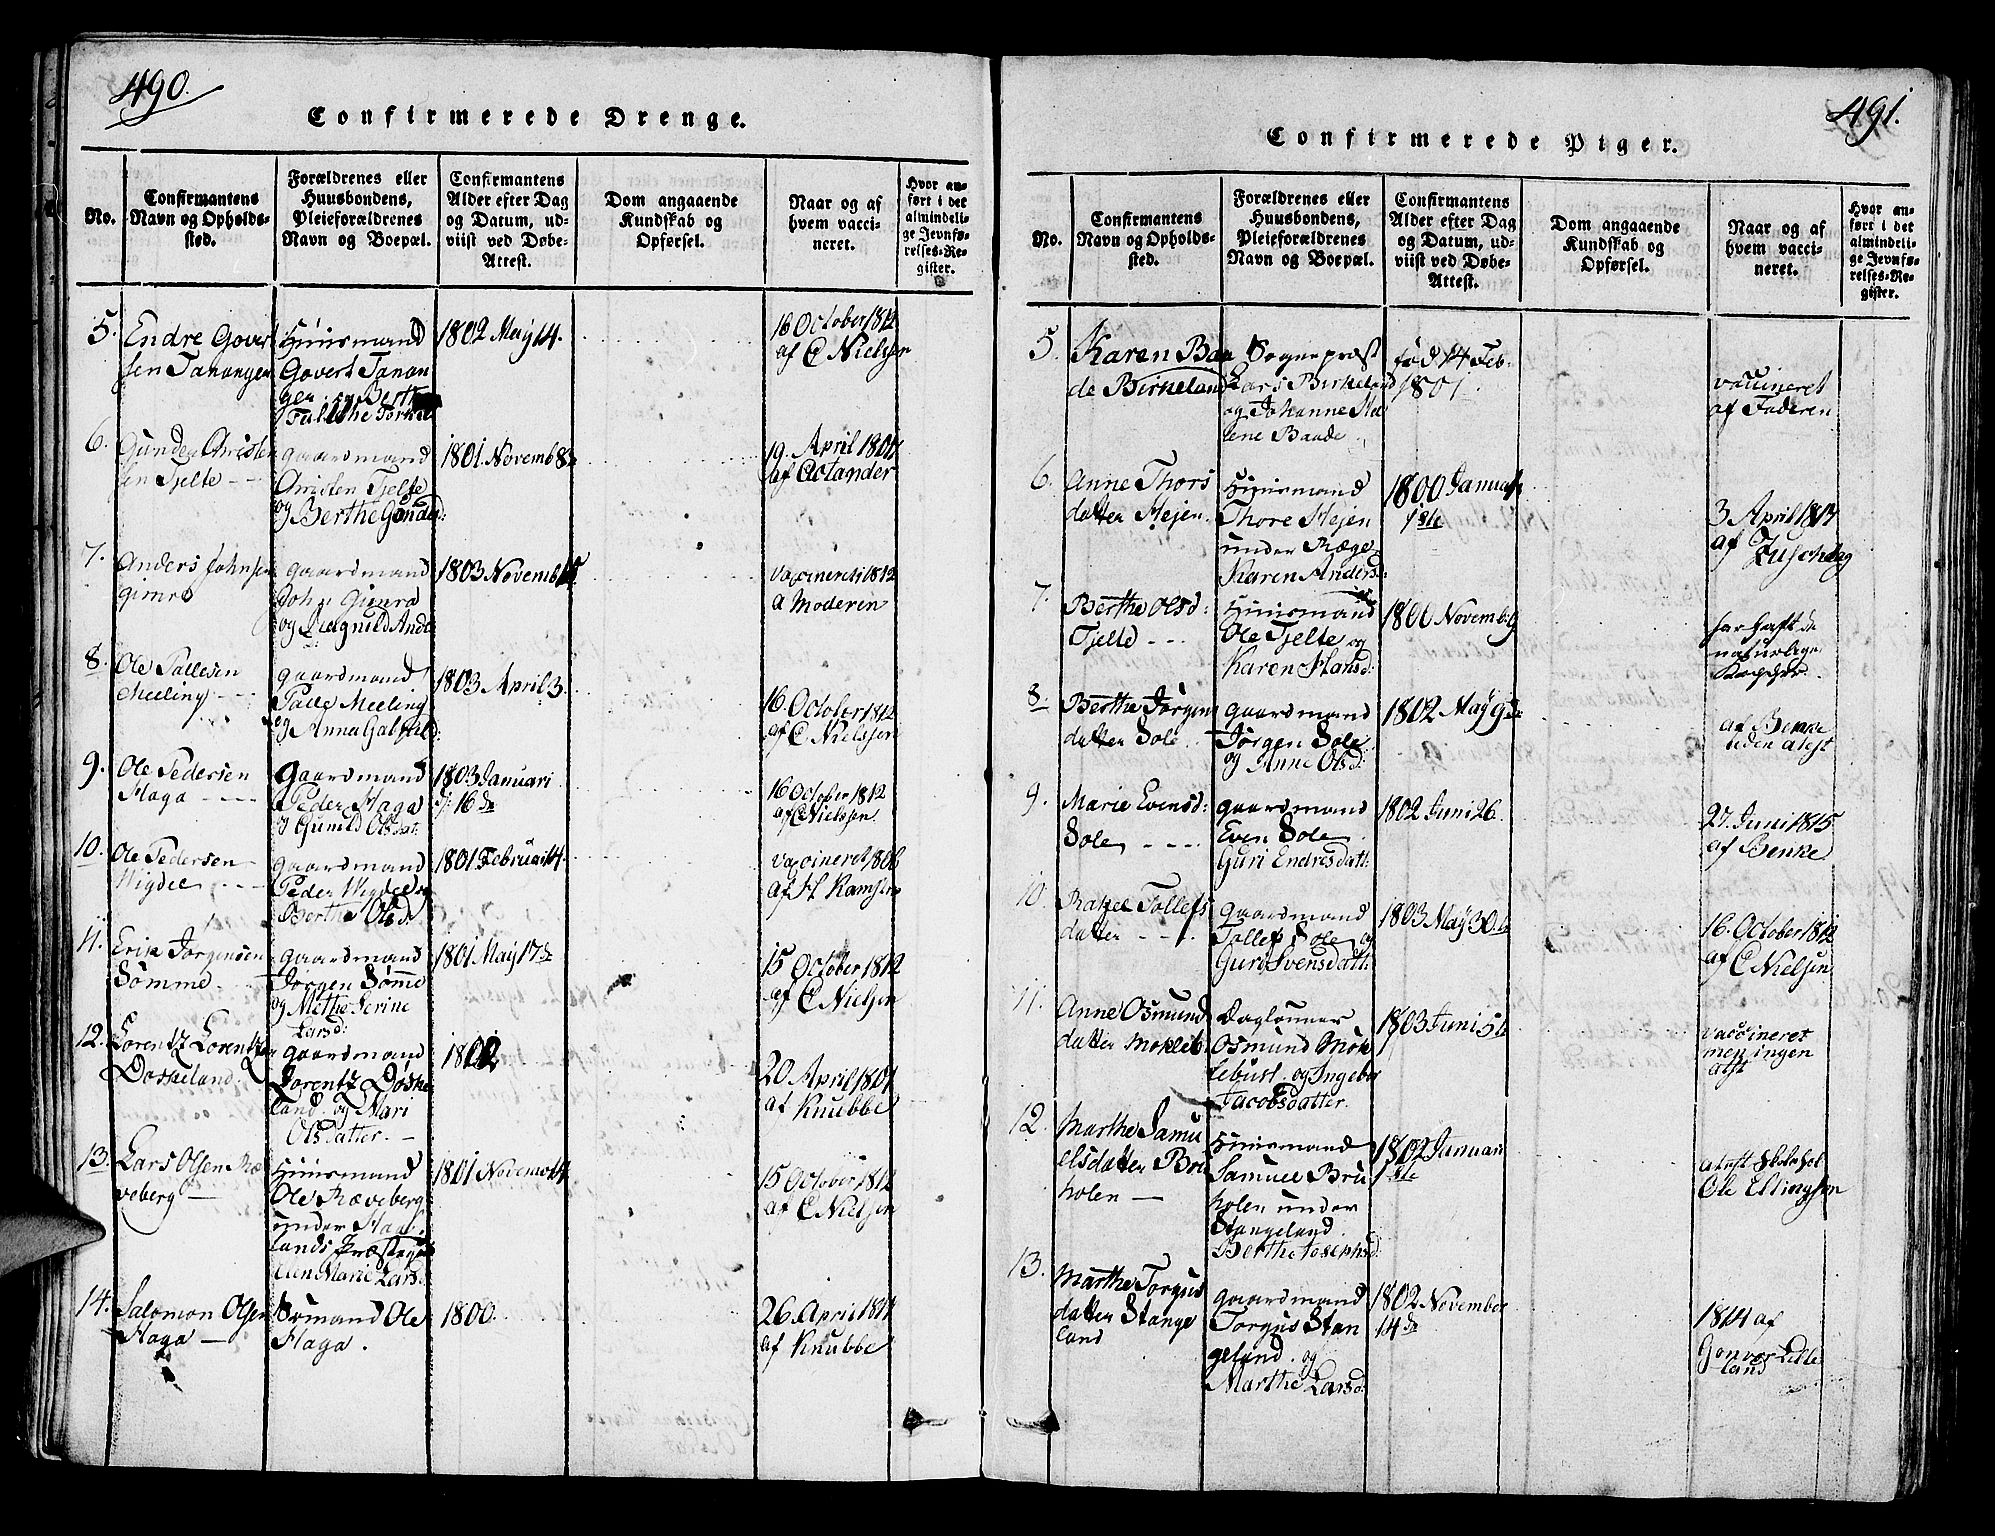 490.
Confirmerede Drenge.
No.
Confirmantens Navn og Opholds-sted.
Forældrenes eller Huusbondens, Pleieforældrenes Navn og Boepæl.
Confirmantens Alder efter Dag og Datum, ud-viist ved Døbe-Attest.
Dom angaaende Kundskab og Opførsel.
Naar og af hvem vacci-neret.
Hvor an-ført i det almindeli-ge Jevnfø-relses-Re-gister.
5. Endre Govert
sen Tananger
Huusmand
Govert Tanan
ger og Berthe
1802 May 14.
16 October 1812
af C Nielsen
6. Gunder Christen
sen Tjelte
gaardmand
Christen Tjelte
og Berthe Gunders:
1801 Novemb 8
19. April 1801
af
7. Anders Johnsen
Gimre
gaardmand
John Gimra
og Ragnild Ande
1803 Novemb 15
vaxineret i 1812
a Moderen
8. Ole Pallesen
Meeling
gaardmand
Palle Meeling
og Anna Gabrield:
1803 April 3.
16. October 1812
af C Nielssen
9. Ole Pedersen
Haga
gaardmand
Peder Haga
og Gunild Olsdat:
1803 Januari
d: 16 de
16 October 1812
af C Nielssen
10. Ole Pedersen
Wigdel
gaardmand
Peder Wigdel og
Berthe Olsd:
1801 Februar 14.
vaxineret 1806
af H Ramsen
11. Erik Jørgensen
Sömme
gaardmand
Jørgen Sømme
og Methe Serine
Larsd:
1801 May 17 de
15 October 1812
af C Nielsen
12. Lorentz Lorentzen
Dosseland
gaardmand
Lorentz Døske
land og Mari
Olsdatter.
1802
20 April 1801
af Knubbe
13. Lars Olsen Ræ
veberg
Huusmand
Ole Ræveberg
under Haa
lands Præstegi
Elen Marie Lars:
1801 Novemb 14
15 October 1812
af C Nielsen
14. Salomon Olsen
Haga
Ole
Haga.
1800.
26. April 1801
af Knubbe
491.
Confirmerede Piger.
No.
Confirmantens Navn og Opholds-sted.
Forældrenes eller Huusbondens, Pleieforældrenes Navn og Boepæl.
Confirmantens Alder efter Dag og Datum, ud-viist ved Døbe-Attest.
Dom angaaende Kundskab og Opførsel.
Naar og af hvem vacci-neret.
Hvor an-ført i det almindeli-ge Jevnfø-relses-Re-gister.
5. Karen Baa
de Birkeland
Sognepræst
Lars Birkeland
og Johanne Ma
lene Baade.
fød 14 Feb.
1801.
vaccineret
af Faderen
6. Anne Thors
datter Hejen.
Huusmand
Thore Hejen
under Ræge
Karen Anders:
1800 Januar
1ste
3 April 1814
af Zuschlag
7. Berthe Olsd:
Tjelte
Huusmand
Ole Tjelte og
Karen Hansd:
1800 Novemb 9
har haft de
naturlige
Kopper.
8. Berthe Jørgens
datter Sole
gaardmand
Jørgen Sole
og Anne Olsd:
1802 May 9 de
af Benke
uden atest
9. Marie Evensd:
Sole
gaardmand
Even Sole
Guri Endresdatt:
1802 Juni 26
27. Juni 1815
af Benke
10. Rakel Tollefs
datter
gaardmand
Tollef Sole og
Guri Svensdatt:
1803 May 30
16. October 1812
af C Nielsen
11. Anne Osmund
datter Mokleb
Daglønner
Osmund Mök
lebust og Ingebor
Jacobsdatter.
1803 Juni 5
vaccineret
men ingen
atest
12. Marthe Samu
elsdatter Bru
holen
Huusmand
Samuel Bru
holen under
Stangeland.
Berthe Josephsd:
1802 Januari
1ste
atest
Ole Ellingsen
13. Marthe Torgus
datter Stange
land
gaardmand
Torgus Stan
geland. og
Marthe Larsd:
1802 November
14 de
1814 af
Gonvor
land